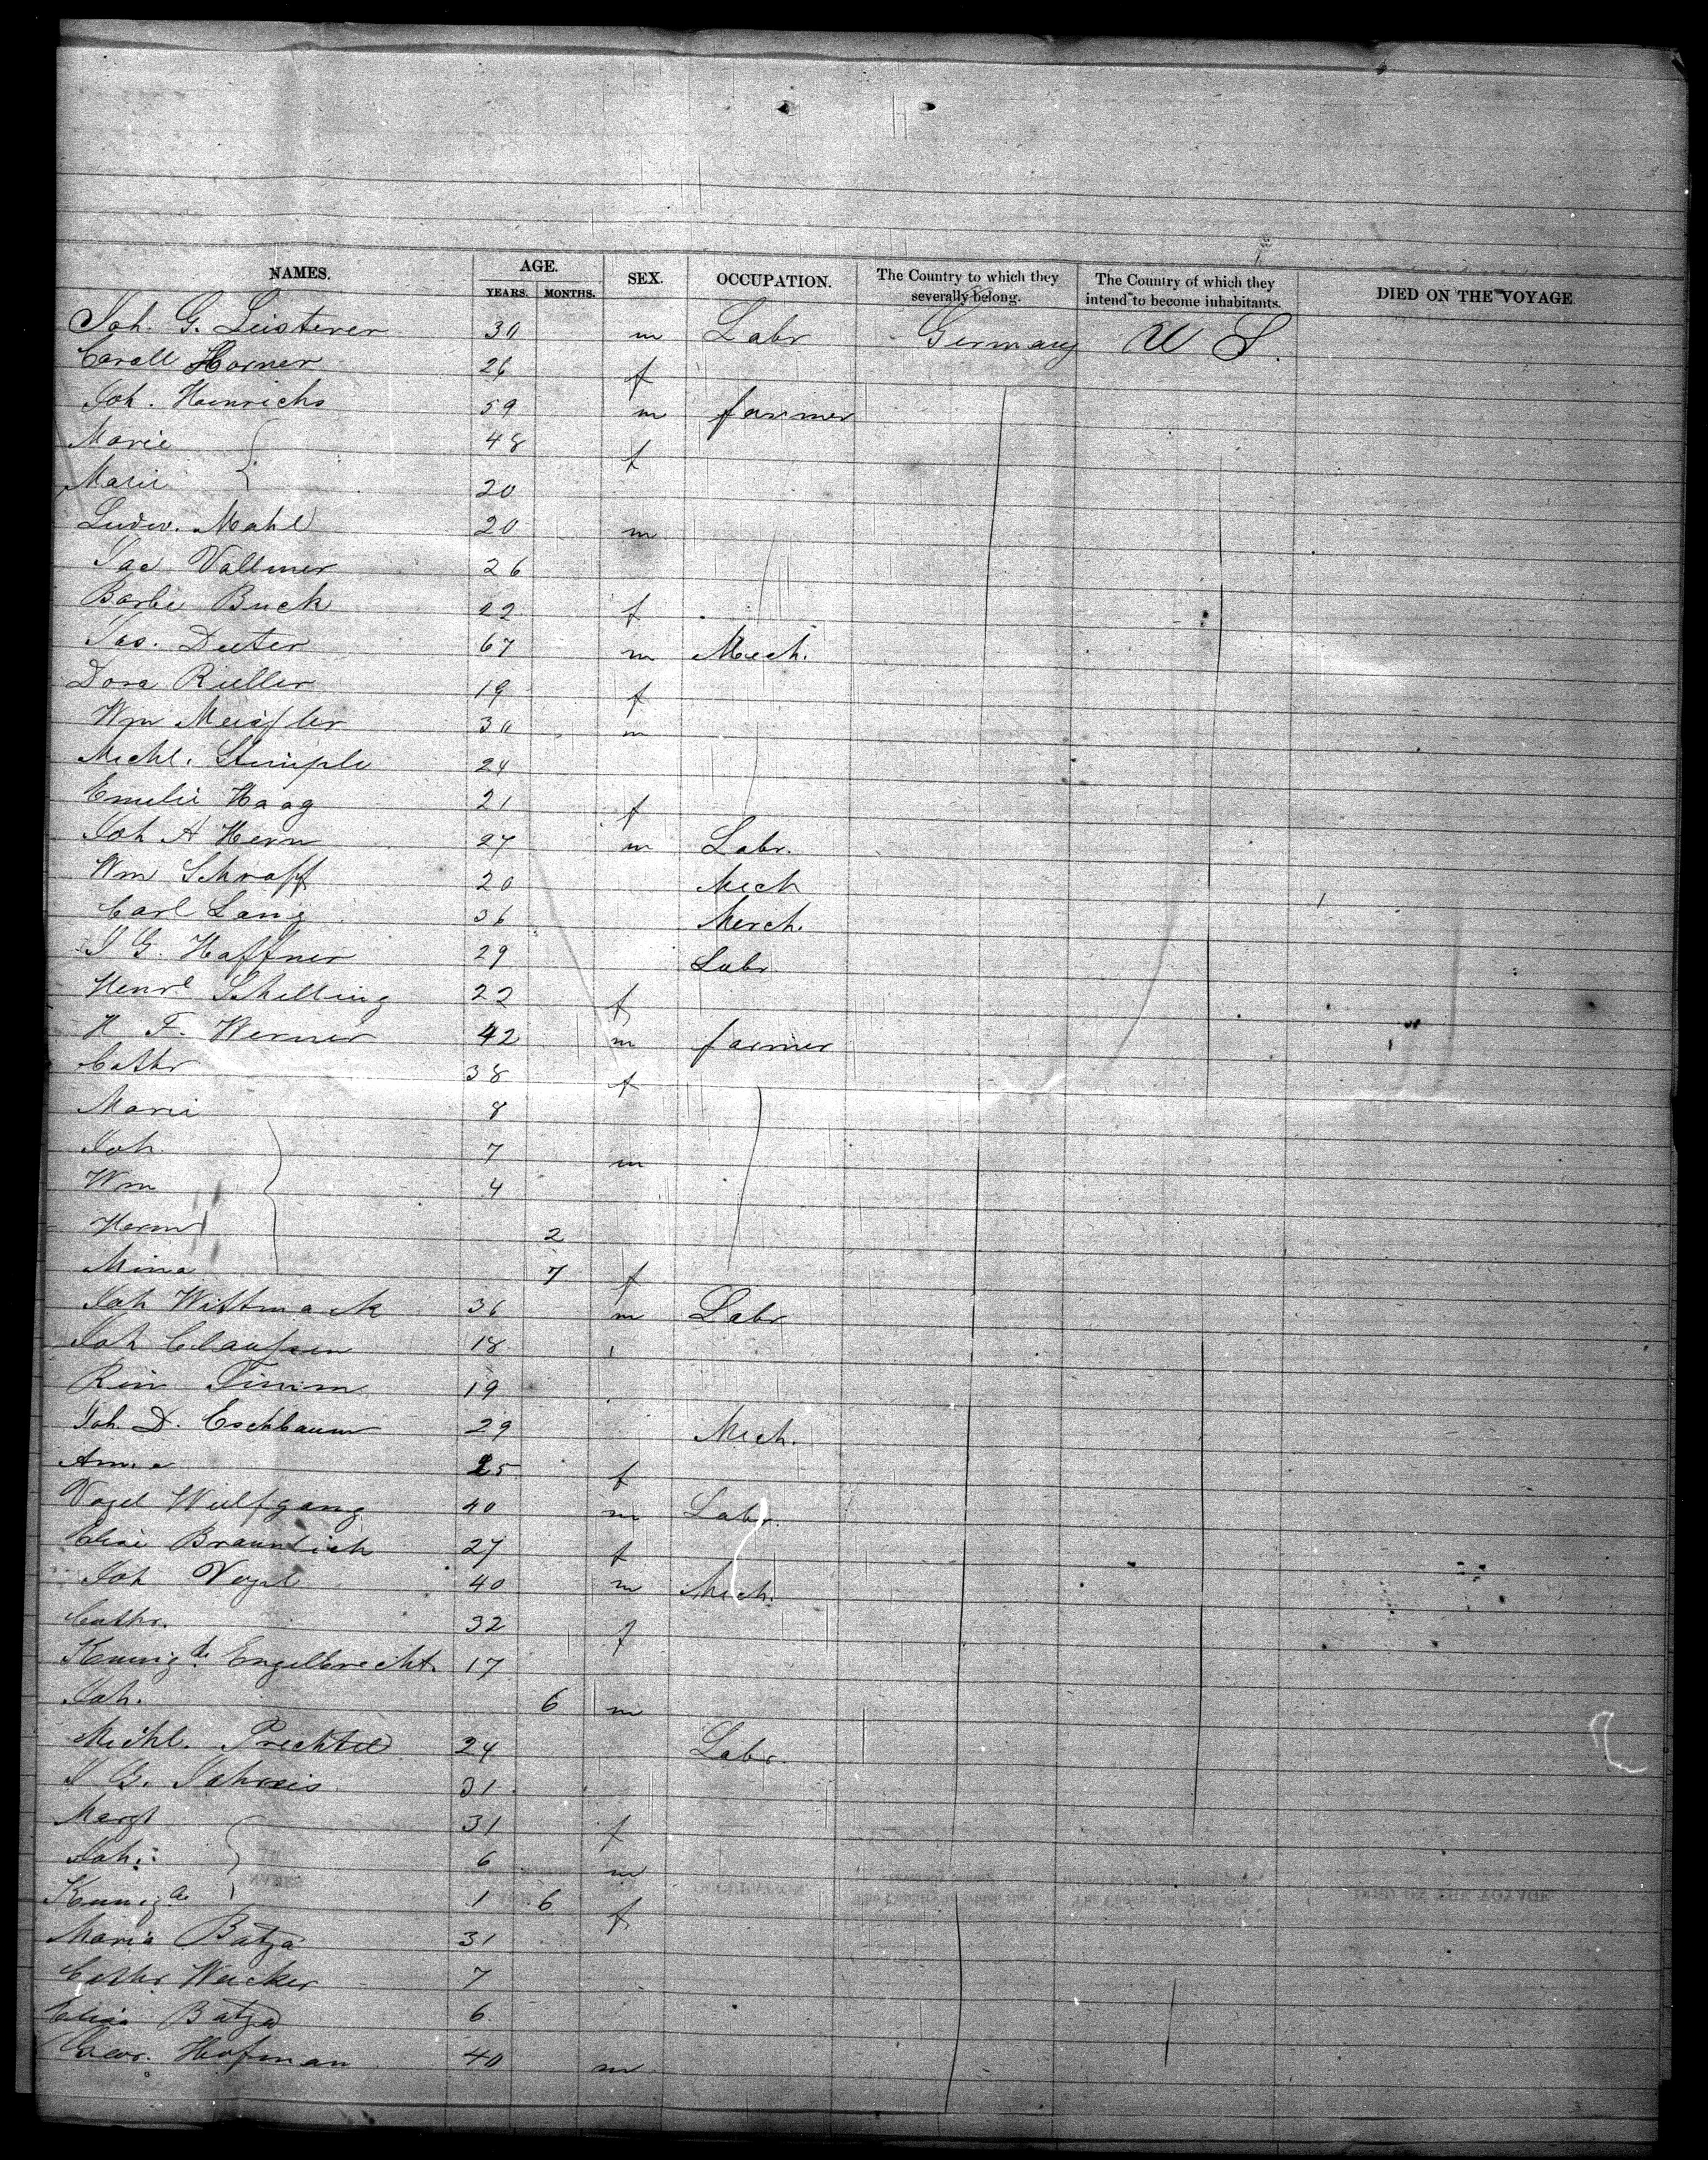 NAMES. AGE. SEX. OCCUPATION. The Country to which they severally belong. The Country of which they intend to become inhabitants. DIED ON THE VOYAGE
YEARS. MONTHS.
Joh. G. Leisterer 30 m Labr Germany U S.
Caroll Horner 26 f
Joh. Heinrichs 59 m farmer
Marie 48 f
Marie 20
Ludw. Mahl 20 m
Jac Vollmer 26
Barbe Buck 22 f
Jos. Deeter 67 m Mech.
Dora Rieller 19 f
Wm Meissler 30 m
Michl. Stimple 24
Emelie Haag 21 f
Joh H Hern 27 m Labr.
Wm Schraff 20 Mech
Carl Lang 36 Merch.
J G. Haffner 29 Labr
Henr. Schelling 22 f
H F. Werner 42 m farmer
Cathr 38 f
Marie 8
Joh 7 m
Wm 4
Herm 2
Mina 7 f
Joh Wittmack 36 m Labr
Joh Claussen 18
Rein Timm 19
Joh. D. Eschbaum 29 Mech.
Anna 25 f
Vogel Wulfgang 40 m Labr.
Elise Braunlich 27 f
Joh Vogel 40 m Mech.
Cathr. 32 f
Kunigde Engelbrecht. 17
Joh. 6 m
Michl. Prechtel 24 Labr.
J G. Jahreis 31
Margt 31 f
Joh. 6 m
Kuniga 1 6 f
Maria Batza 31
Cathr Wecker 7
Elisa Batza 6
Geor. Hofman 40 m